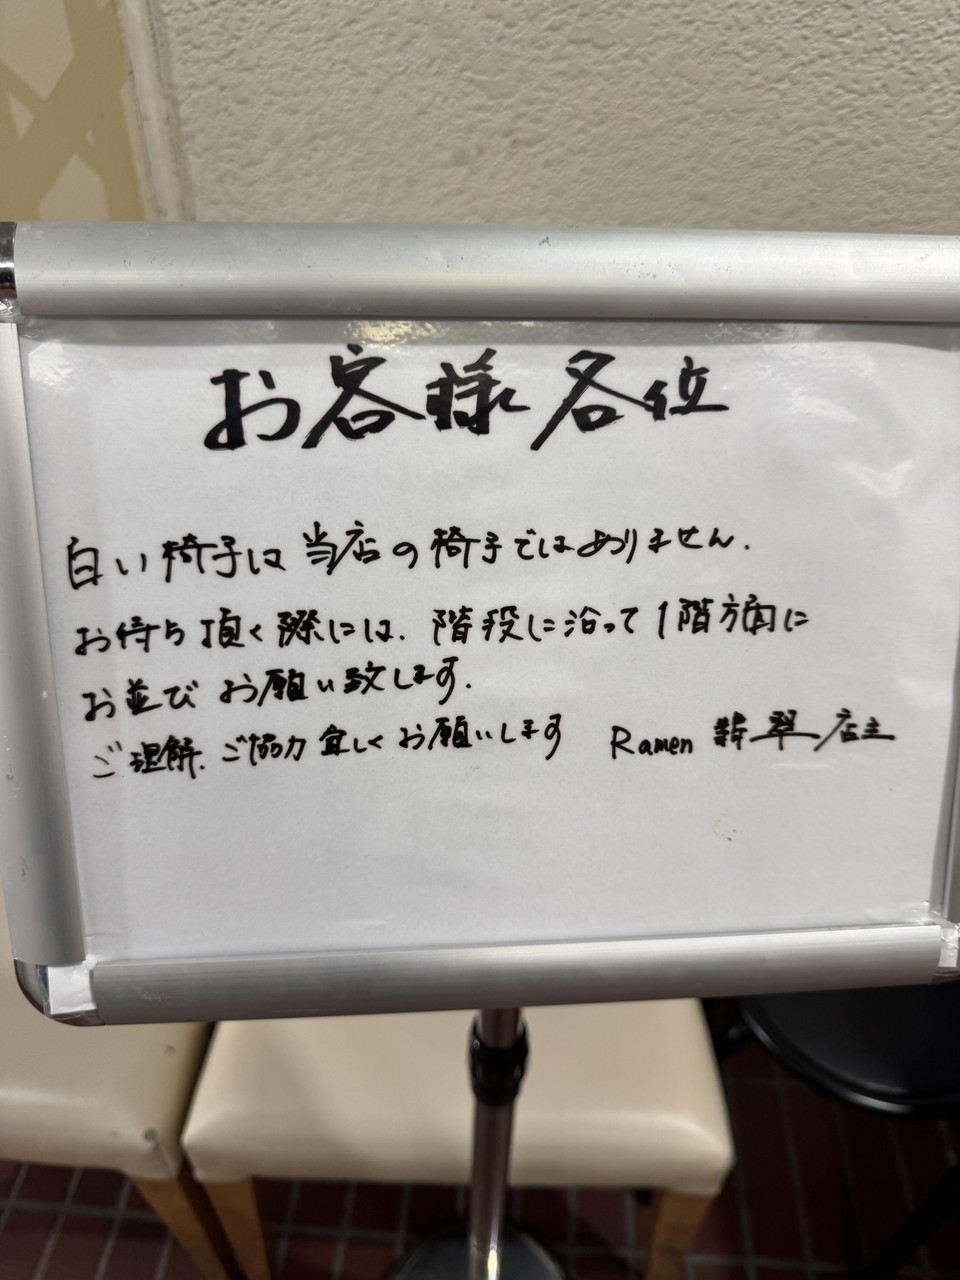 お客様各位
白い椅子は当店の椅子ではありません.
お待ち頂く際には、階段に沿って1階方面に
お並びお願い致します.
ご理解、ご協力宜しくお願いします Ramen 翡翠店主